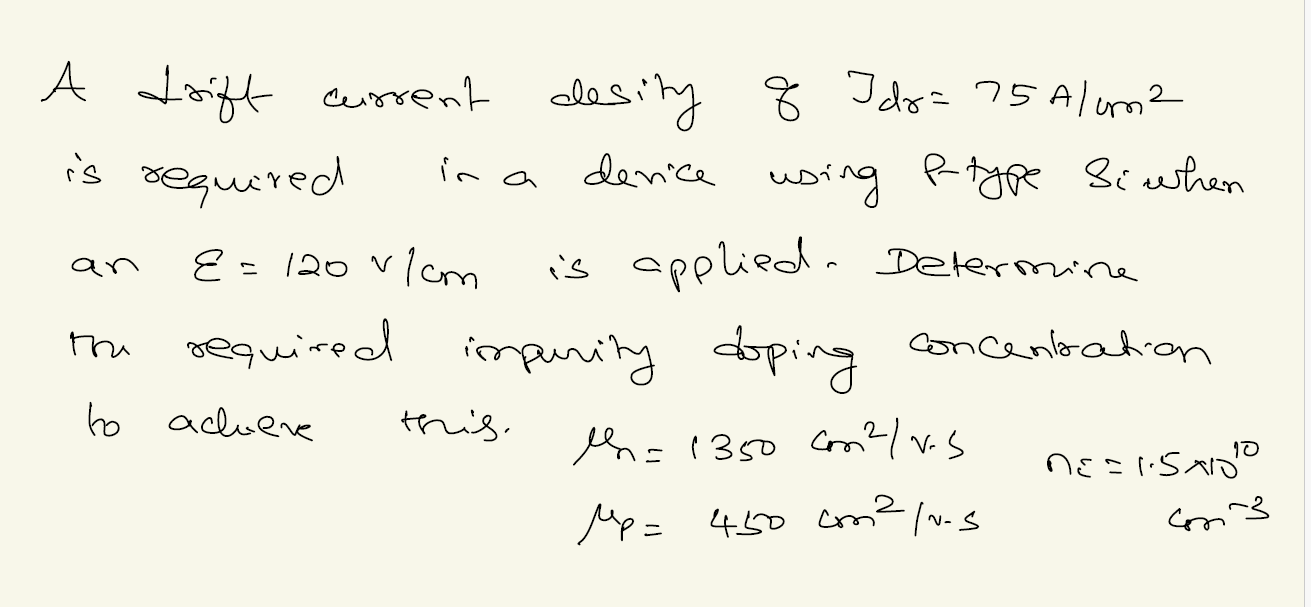 A drift current desity of Jdr = 75 A/cm2
is required in a device using P-type Si when
an Ɛ = 120 V/cm is applied. Determine
the required impurity doping concentration
to achieve this. μn = 1350 cm²/V-S ni = 1.5×10¹⁰
μp = 450 cm²/V-S cm⁻³